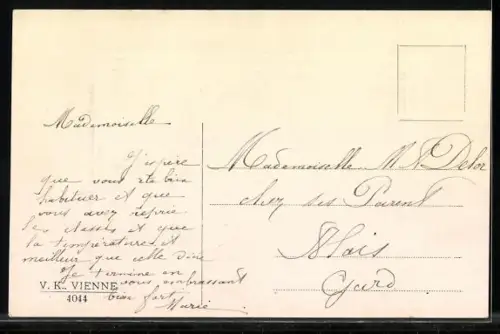 Mademoiselle
J'espère
que vous ete bien
habituer et que
vous avez repris
les classes et que
la températures et
meilleur que celle d'ici
Je termine en
vous embrassant
bien fort
Marie
V. K. VIENNE
4044
Mademoiselle M Delor
chez ses Parent
Alais
Gard